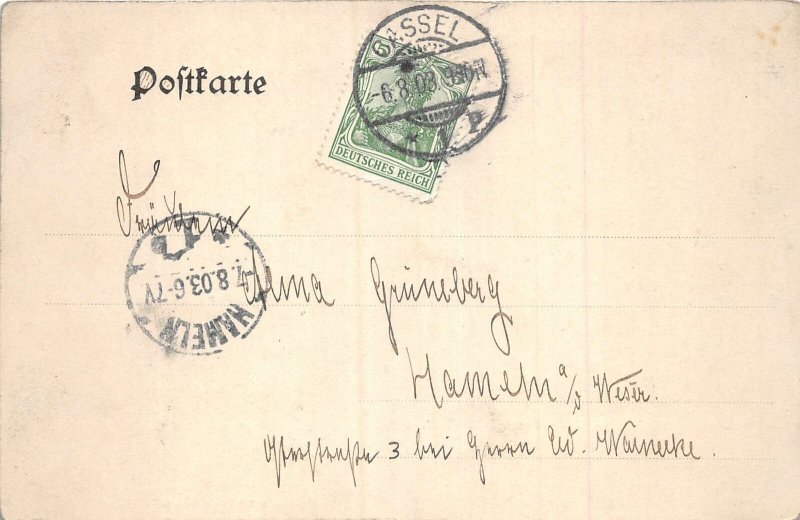 CASSEL
5
-6.8.03.
* 1 P
DEUTSCHES REICH
Postkarte
Fräulein
Anna Grüneberg
Hameln a/d Weser.
Osterstraße 3 bei Herrn Ed. Warnecke.
7.8.03.6-7V.
HAMELN